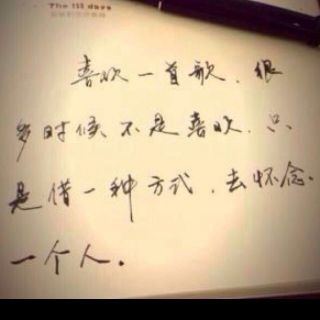 The 158 days
喜欢一首歌．很
多时候不是喜欢．只
是借一种方式．去怀念．
一个人．